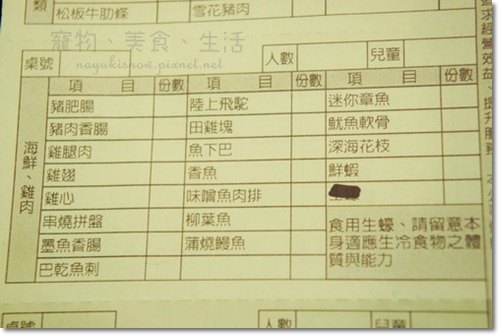 類
松板牛肋條
雪花豬肉
寵物、美食、生活
nayukisnow.pixnet.net
桌號
人數
兒童
項 目 份數 項 目 份數 項 目 份數
海鮮、雞肉
豬肥腸 陸上飛駝 迷你章魚
豬肉香腸 田雞塊 魷魚軟骨
雞腿肉 魚下巴 深海花枝
雞翅 香魚 鮮蝦
雞心 味噌魚肉排
串燒拼盤 柳葉魚
墨魚香腸 蒲燒鰻魚
巴乾魚刺
食用生蠔、請留意本
身適應生冷食物之體
質與能力
桌號
人數
兒童